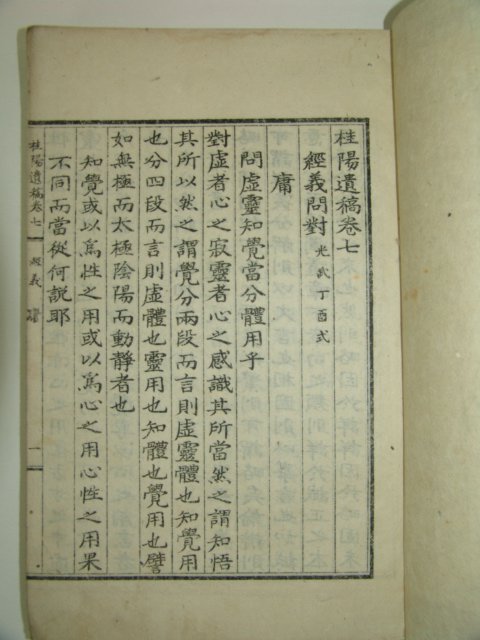 桂陽遺稿卷七
經義問對 光武丁酉式
庸
問虛靈知覺當分體用乎
對虛者心之寂靈者心之感識其所當然之謂知悟
其所以然之謂覺分兩段而言則虛靈體也知覺用
也分四段而言則虛體也靈用也知體也覺用也譬
如無極而太極陰陽而動靜者也
知覺或以爲性之用或以爲心之用心性之用果
不同而當從何說耶
桂陽遺稿卷七 經義 一